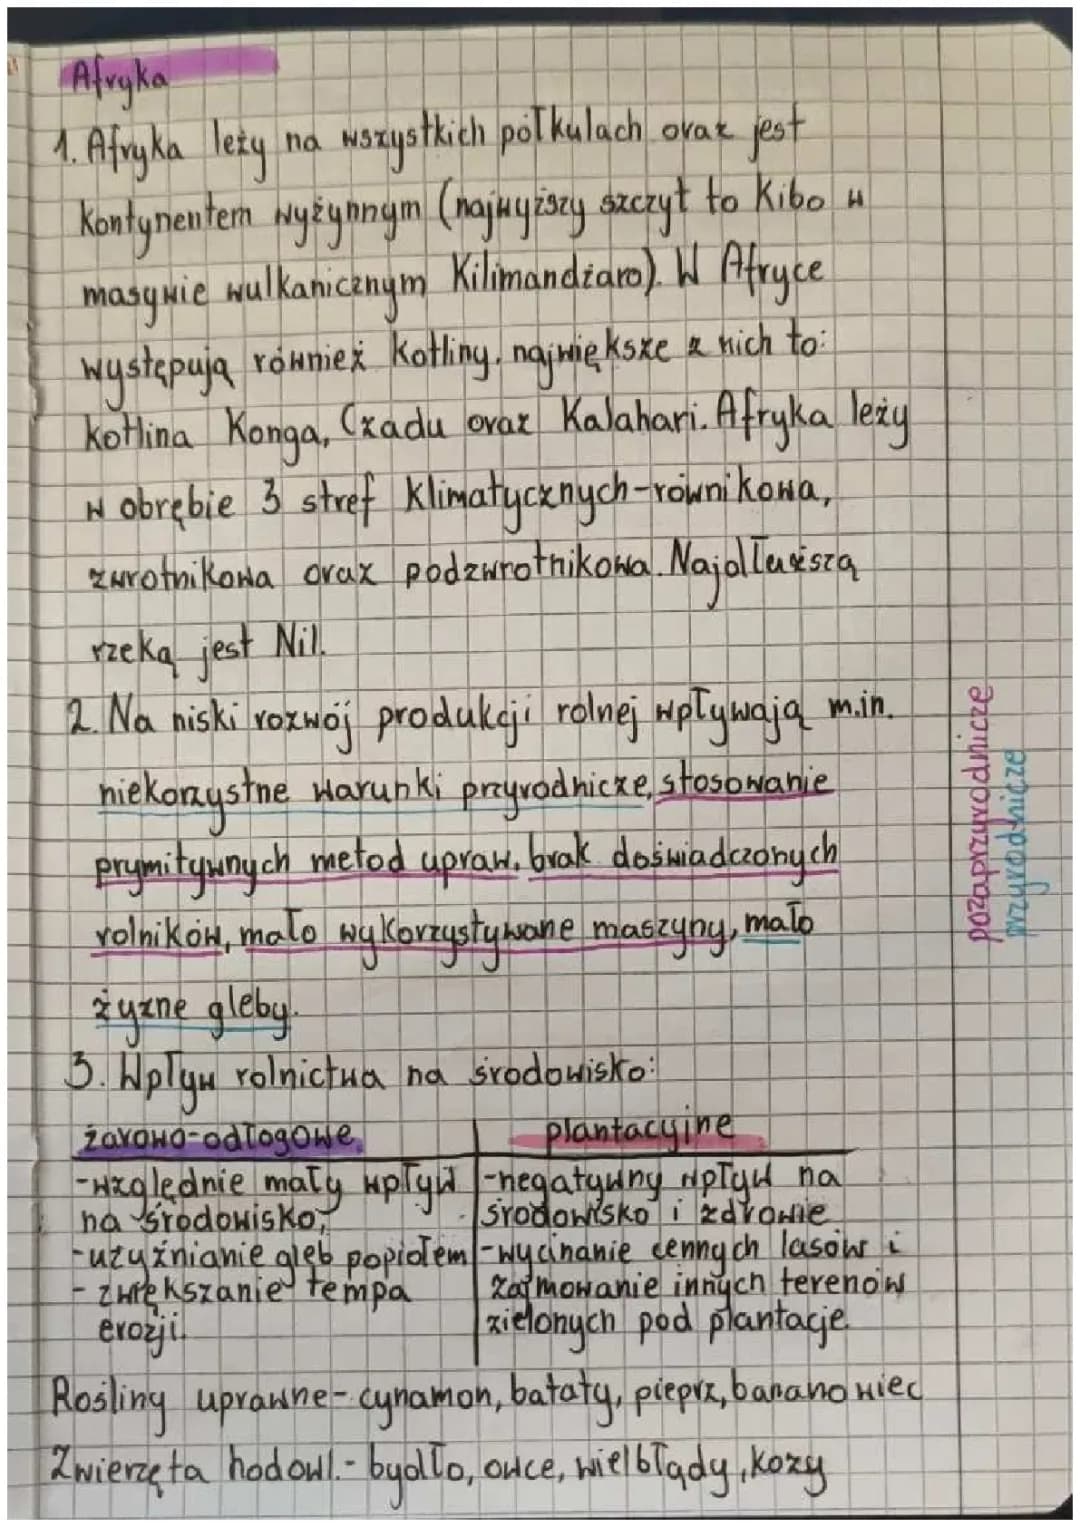 Afryka
1. Afryka leży na wszystkich półkulach oraz jest
kontynentem wyżynnym (najwyższy szczyt to Kibo w
masywie wulkanicznym Kilimandżaro). W Afryce
występują również kotliny, największe z nich to:
kotlina Konga, Czadu oraz Kalahari. Afryka leży
w obrębie 3 stref klimatycznych-równikowa,
zwrotnikowa oraz podzwrotnikowa. Najdłuższą
rzeką jest Nil.
2. Na niski rozwój produkcji rolnej wpływają m.in.
niekorzystne warunki przyrodnicze, stosowanie
prymitywnych metod upraw, brak doświadczonych
rolników, mało wykorzystywane maszyny, mało
żyzne gleby.
pozaprzyrodnicze
przyrodnicze
3. Wpływ rolnictwa na środowisko:
żarowo-odłogowe
-względnie mały wpływ
na środowisko,
-użyźnianie gleb popiołem
- zwiększanie tempa
erozji.
plantacyjne
-negatywny wpływ na
środowisko i zdrowie
-wycinanie cennych lasów i
zajmowanie innych terenów
zielonych pod plantacje.
Rośliny uprawne-cynamon, bataty, pieprz, bananowiec
Zwierzęta hodowl.-bydło, owce, wielbłądy, kozy